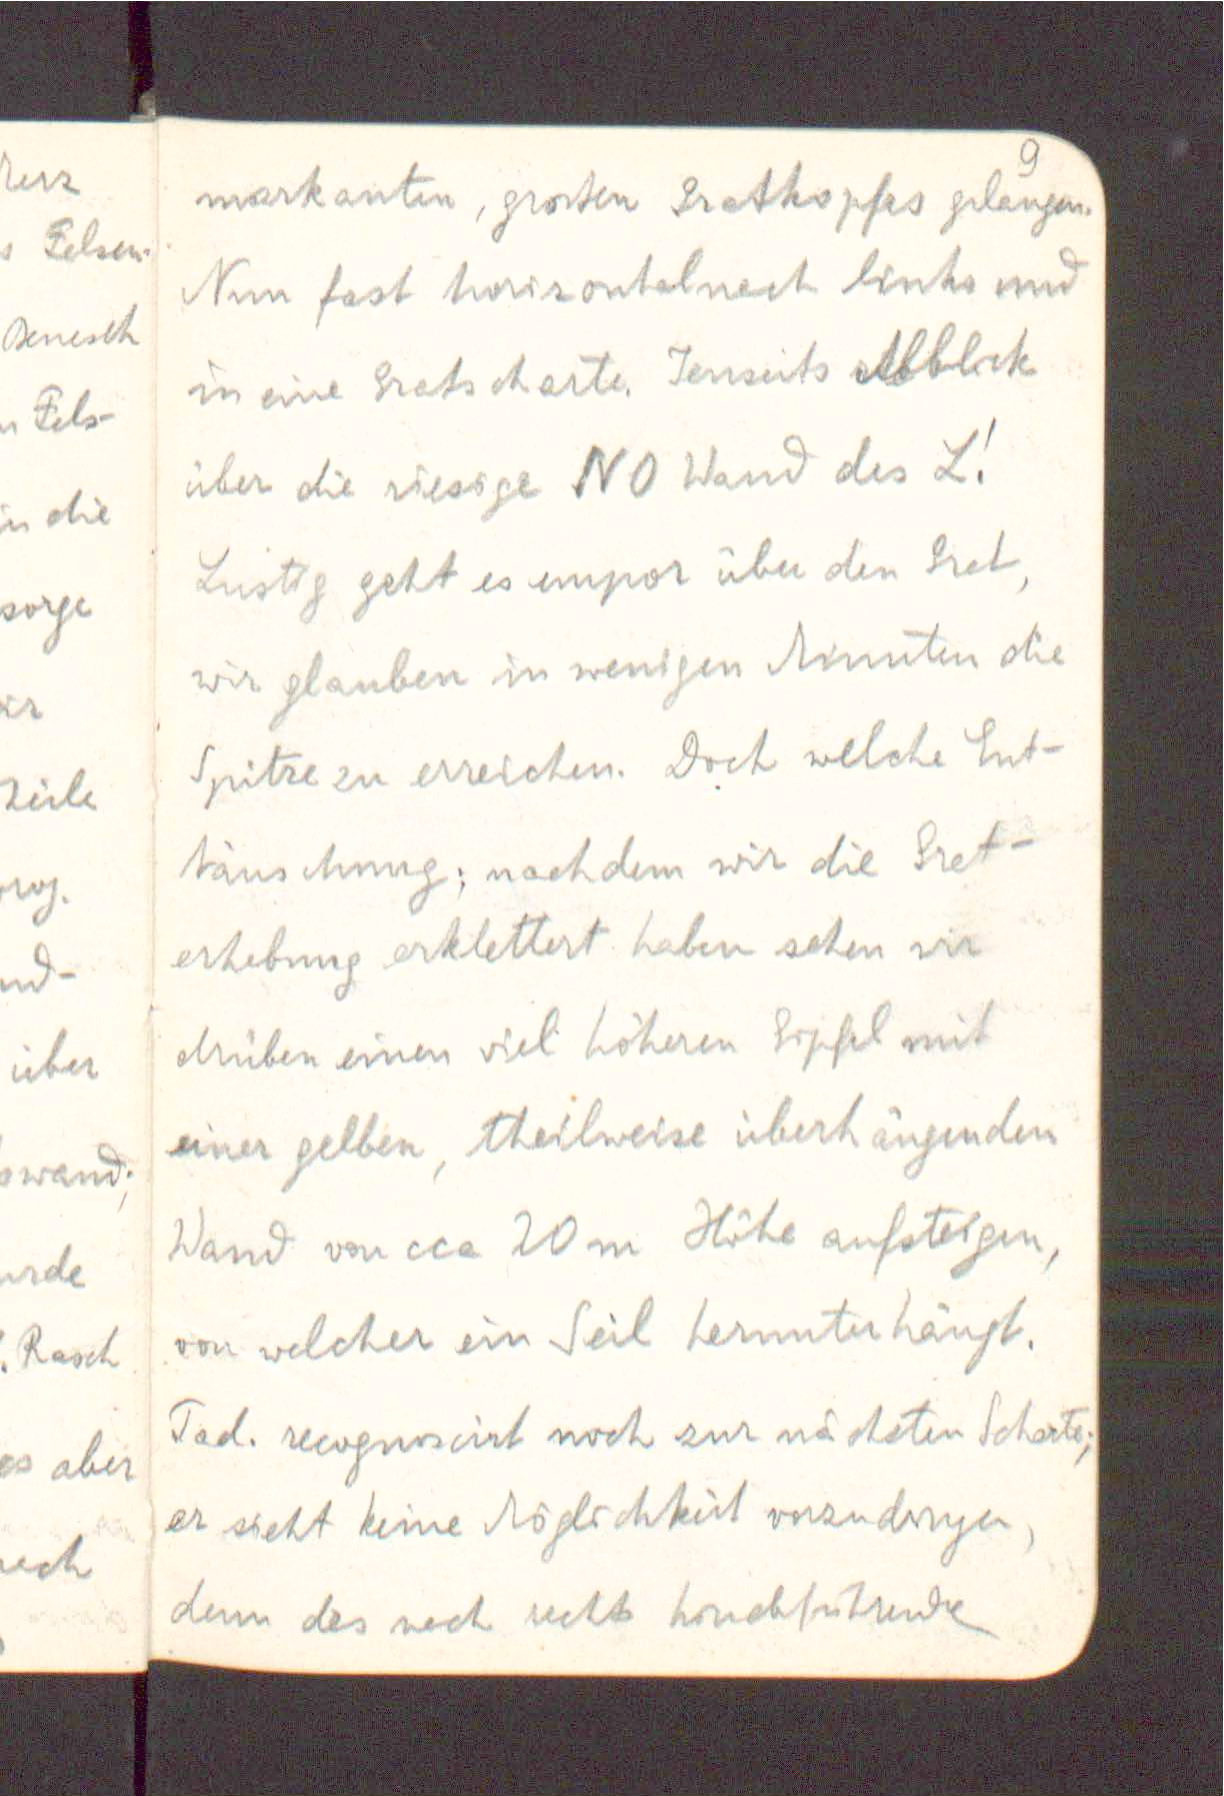 9
markanten, grossen Gratkopfes gelangen.
Nun fast horizontal nach links und
in eine Gratscharte. Jenseits Abblick
über die riesige NO Wand des L!
Lustig geht es empor über den Grat,
wir glauben in wenigen Minuten die
Spitze zu erreichen. Doch welche Ent-
täuschung; nachdem wir die Grat-
erhebung erklettert haben sehen wir
drüben einen viel höheren Gipfel mit
einer gelben, theilweise überhängenden
Wand von cca 20 m Höhe aufsteigen,
von welcher ein Seil herunterhängt.
Tad. recognoscirt noch zur nächsten Scharte;
er sieht keine Möglichkeit vorzudringen,
denn das nach rechts hinabführende
Herz
Felsen-
Benesch
Fels-
in die
sorge
Zeile
über
wand;
Rasch
es aber